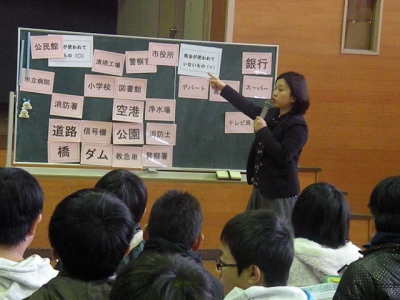 公民館
使われて
(○)
清掃工場
警察
市役所
税金が使われて
いないもの(×)
銀行
市立病院
小学校
図書館
デパート
スーパー
消防署
空港
浄水場
テレビ局
道路
信号機
公園
消防士
橋
ダム
救急車
警察署